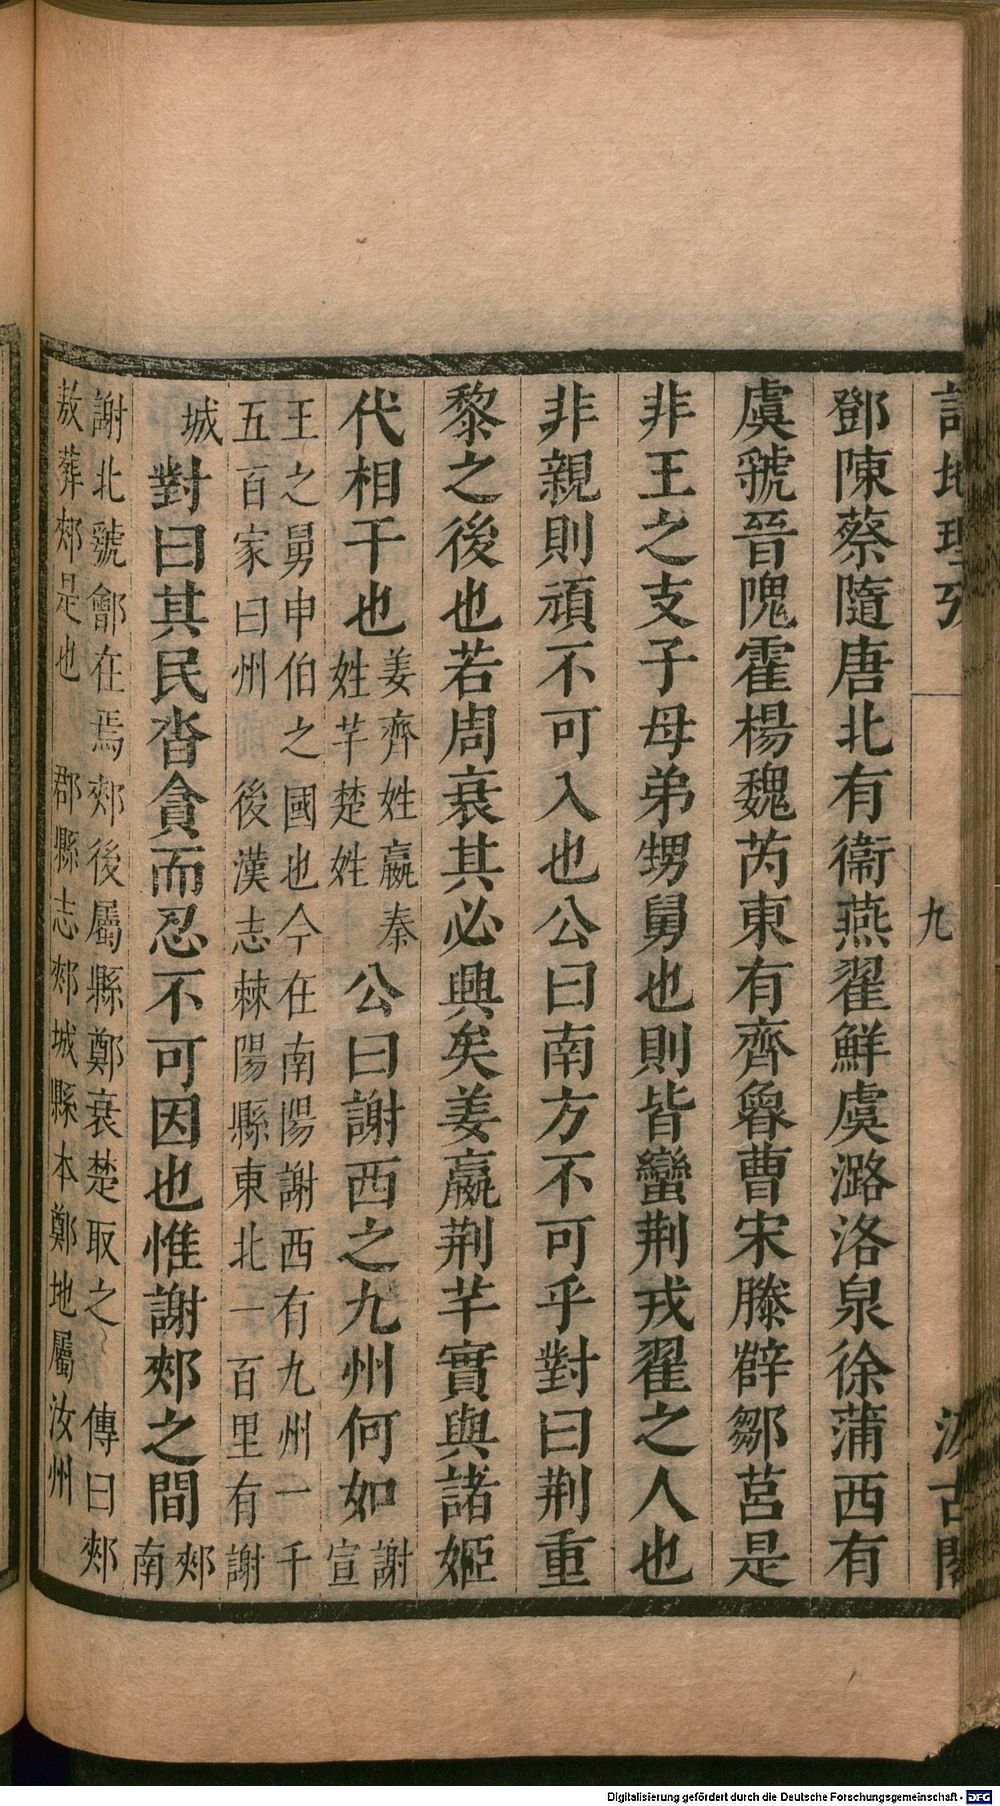 詩地理攷
九
汲古閣
鄧陳蔡隨唐北有衞燕翟鮮虞潞洛泉徐蒲西有
虞虢晉隗霍楊魏芮東有齊魯曹宋滕薛鄒莒是
非王之支子母弟甥舅也則皆蠻荆戎翟之人也
非親則頑不可入也公曰南方不可乎對曰荆重
黎之後也若周衰其必興矣姜嬴荆芊實與諸姬
代相干也
姜齊姓嬴秦
姓芊楚姓
公曰謝西之九州何如
謝
宣
王之舅申伯之國也今在南陽謝西有九州一千
五百家曰州
後漢志棘陽縣東北一百里有謝
城
對曰其民沓貪而忍不可因也惟謝郟之間
郟
南
謝北虢鄶在焉郟後屬縣鄭衰楚取之
傳曰郟
敖葬郟是也
郡縣志郟城縣本鄭地屬汝州
Digitalisierung gefördert durch die Deutsche Forschungsgemeinschaft - DFG